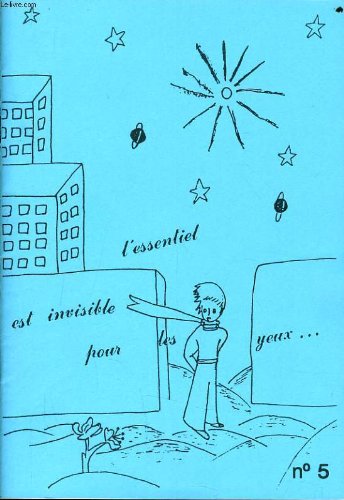 Le-livre.com
l'essentiel
est invisible
pour les yeux...
n° 5